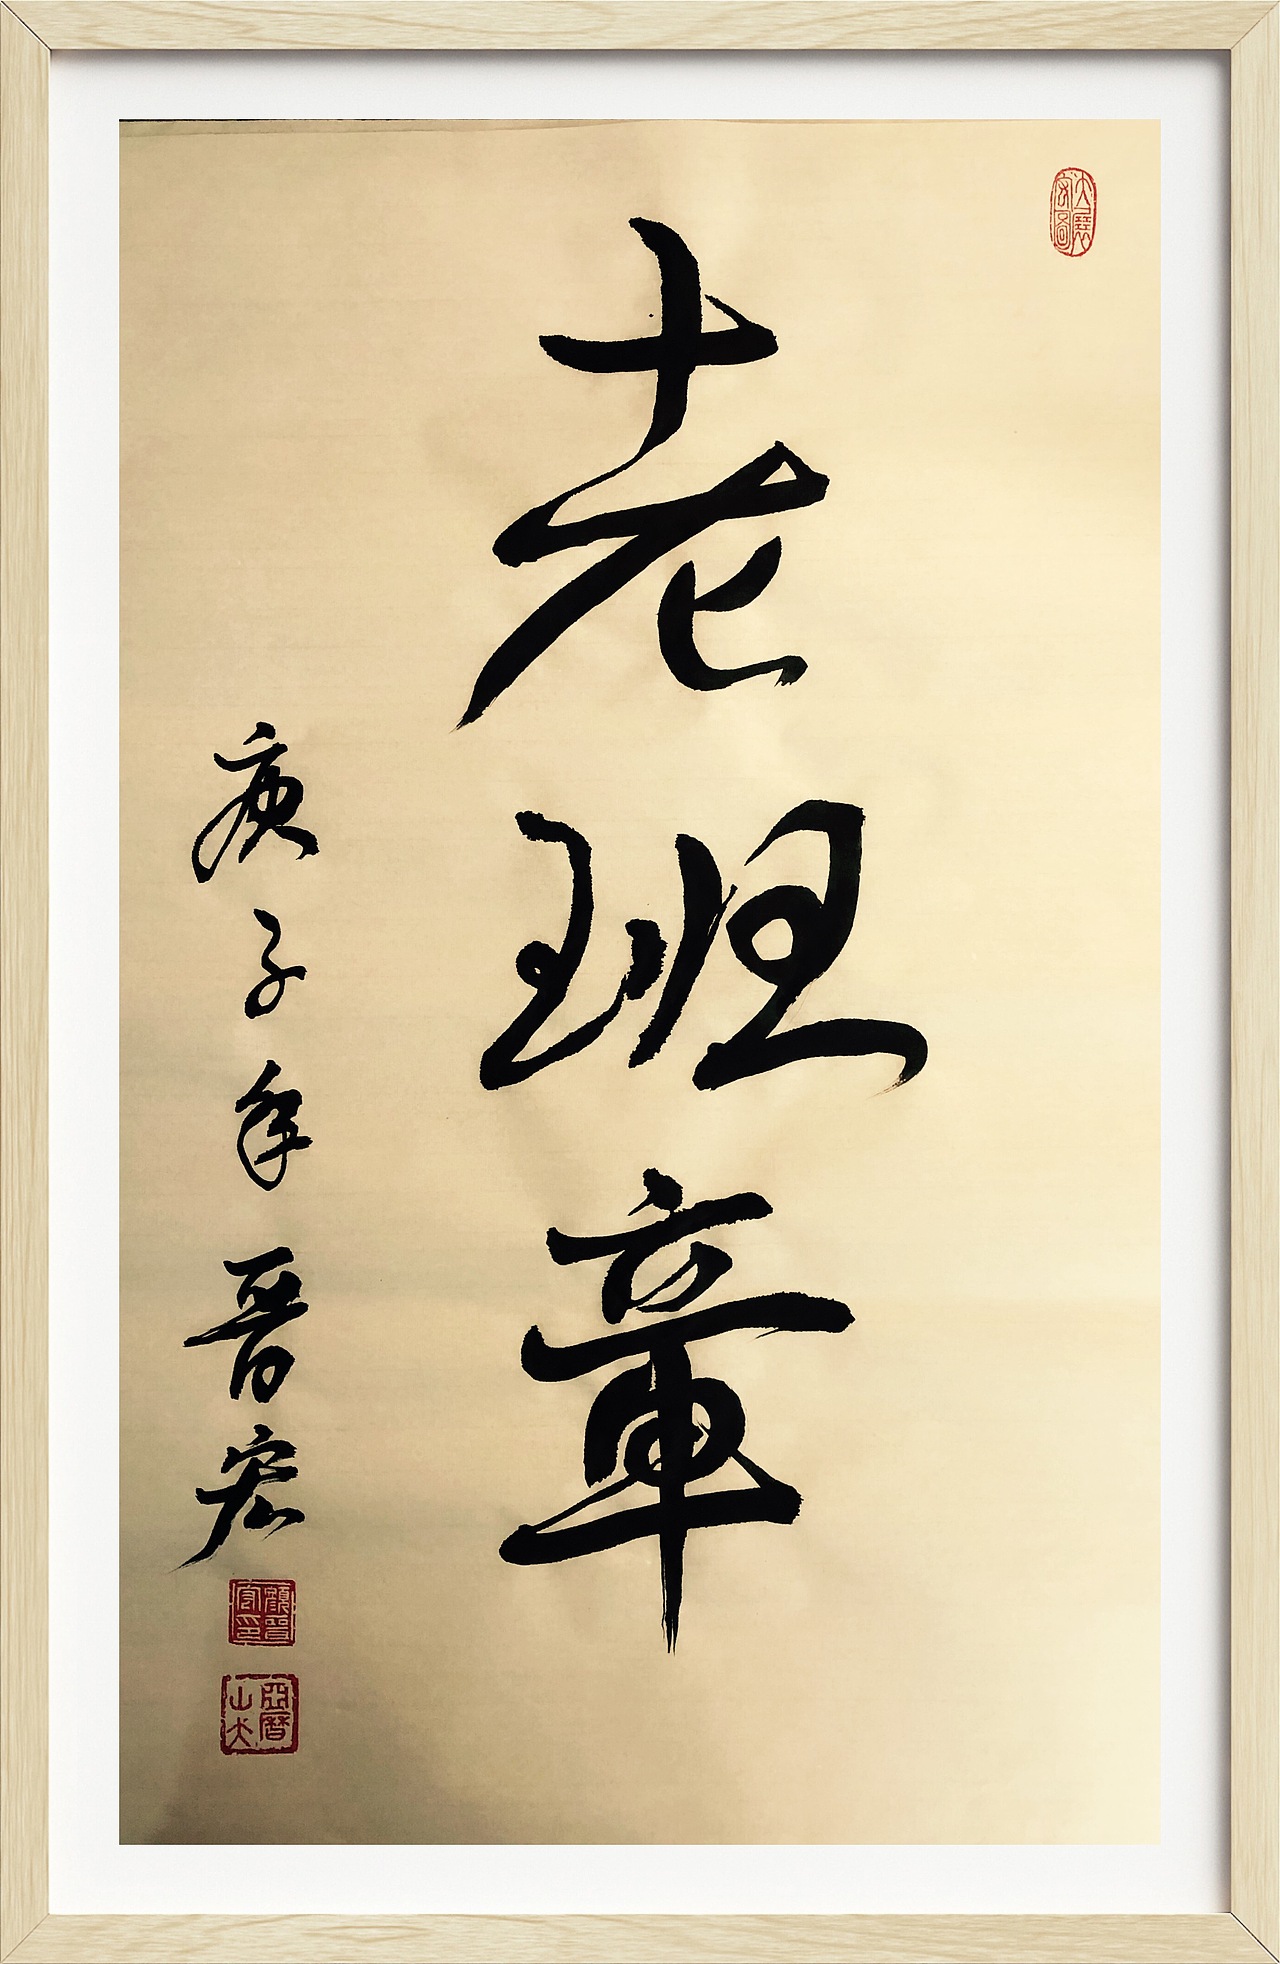 老班章
庚子年 晋宏